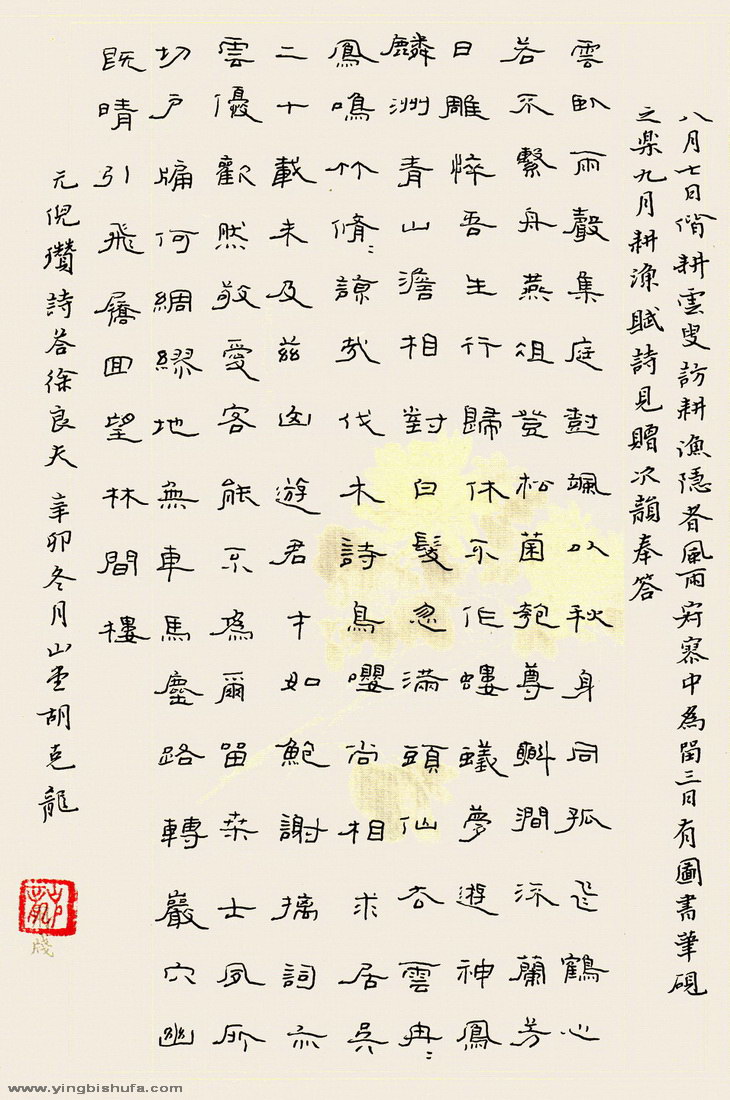 八月七日偕耕雲叟訪耕漁隱者風雨寂寥中為留三日有圖書筆硯
之樂九月耕漁賦詩見贈次韻奉答
雲臥雨聲集庭尌颯以秋身同孤飛鶴心
若不繫舟燕俎登松菌匏尊斟澗流蘭芳
日雕悴吾生行歸休不作螻蟻夢遊神鳳
麟洲青山澹相對白髮忽滿頭仙谷雲冉〻
鳳鳴竹脩〻諒哉伐木詩鳥嚶尚相求居吳
二十載未及茲山遊君才如鮑謝摛詞亦
雲優歡然敬愛客能不為爾留桑士夙所
切戶牖何綢繆地無車馬塵路轉巖穴幽
既晴引飛屩回望林間樓
元倪瓚詩答徐良夫辛卯冬月山堂胡克龍
www.yingbishufa.com